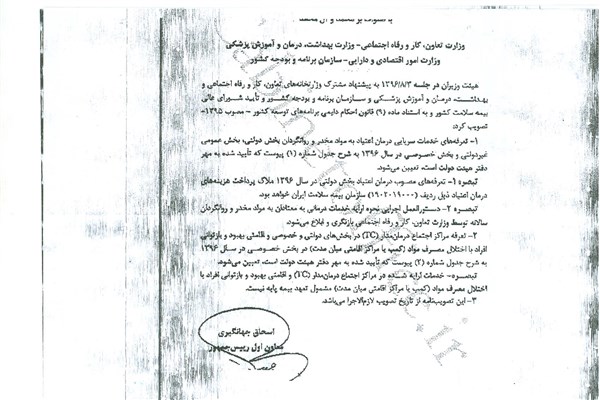 با صلوات بر محمد و آل محمد
وزارت تعاون، کار و رفاه اجتماعی- وزارت بهداشت، درمان و آموزش پزشکی
وزارت امور اقتصادی و دارایی- سازمان برنامه و بودجه کشور
هیئت وزیران در جلسه ۱۳۹۶/۸/۳ به پیشنهاد مشترک وزارتخانه‌های تعاون، کار و رفاه اجتماعی و
بهداشت، درمان و آموزش پزشکی و سازمان برنامه و بودجه کشور و تأیید شورای عالی
بیمه سلامت کشور و به استناد ماده (۹) قانون احکام دایمی برنامه‌های توسعه کشور - مصوب ۱۳۹۵-
تصویب کرد:
۱- تعرفه‌های خدمات سرپایی درمان اعتیاد به مواد مخدر و روانگردان بخش دولتی، بخش عمومی
غیردولتی و بخش خصوصی در سال ۱۳۹۶ به شرح جدول شماره (۱) پیوست که تأیید شده به مهر
دفتر هیئت دولت است، تعیین می‌شود.
تبصره ۱- تعرفه‌های مصوب درمان اعتیاد بخش دولتی در سال ۱۳۹۶ ملاک پرداخت هزینه‌های
درمان اعتیاد ذیل ردیف (۱۹۰۲۰۱۹۰۰۰) سازمان بیمه سلامت ایران خواهد بود.
تبصره ۲- دستورالعمل اجرایی نحوه ارایه خدمات درمانی به معتادان به مواد مخدر و روانگردان
سالانه توسط وزارت تعاون، کار و رفاه اجتماعی بازنگری و ابلاغ می‌شود.
۲- تعرفه مراکز اجتماع درمان‌مدار (TC) در بخش‌های دولتی و خصوصی و اقامتی بهبود و بازتوانی
افراد با اختلال مصرف مواد (کمپ یا مراکز اقامتی میان مدت) در بخش خصوصی در سال ۱۳۹۶
به شرح جدول شماره (۲) پیوست که تأیید شده به مهر دفتر هیئت دولت است، تعیین می‌شود.
تبصره- خدمات ارایه شده در مراکز اجتماع درمان‌مدار (TC) و اقامتی بهبود و بازتوانی افراد با
اختلال مصرف مواد (کمپ یا مراکز اقامتی میان مدت) مشمول تعهد بیمه پایه نیست.
۳- این تصویب‌نامه از تاریخ تصویب لازم‌الاجرا می‌باشد.
اسحاق جهانگیری
معاون اول رییس‌جمهور